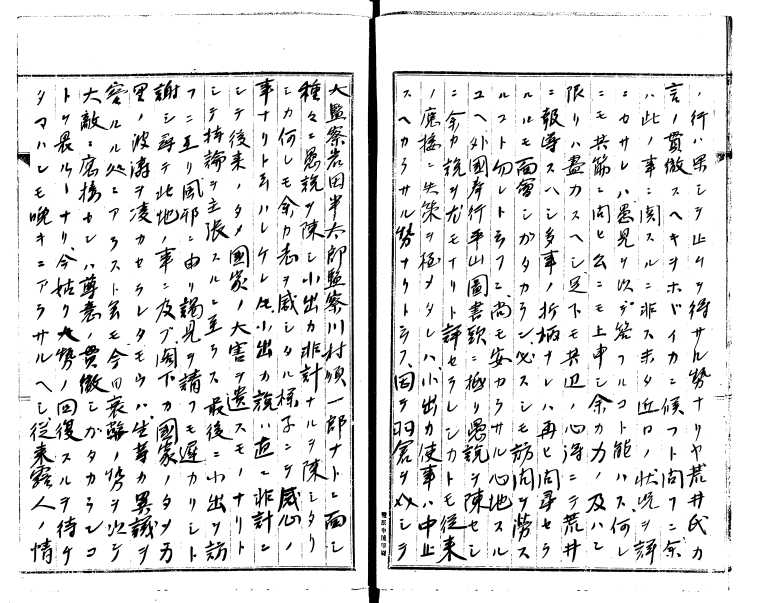 ノ行ハ果シテ止ムヲ得サル勢ナリヤ荒井氏カ
言ノ貫徹スヘキヲホドイカニ候フト問フニ余
ハ此ノ事ニ関スルニ非ス未タ近日ノ状況ヲ詳
ニカサレハ愚見ヲ以テ答フルコト能ハス何レ
ニモ其節ニ問ヒ公ニモ上申シ余カ力ノ及ハン
限リハ盡力スヘシ足下モ其辺ノ心得ニテ荒井
ニ報導スヘシ多事ノ折柄ナレハ再ヒ問尋セラ
ルルモ面會シガタカラン必スシモ訪問ヲ労ス
ルコト勿レト云フニ尚モ安カラサル心地スル
ユヘ外國奉行平山圖書頭ニ極リ愚説ヲ陳セシ
ニ余カ説ヲ尤モナリト評セラレシカトモ従来
ノ應接ニ失策ヲ極メタレハ小出カ使事ハ中止
スヘカラサル勢ナリト云フ因テ羽倉ヲ以シテ
大監察岩田半太郎監察川村順一郎ナトニ面シ
種々ニ愚説ヲ陳シ小出カ非計ナルヲ陳シタリ
シカ何レモ余カ志ヲ感シタル様子ニテ感心ノ
事ナリト云ハレケレ共小出カ説ハ直ニ非計ニ
シテ後来ノタメ國家ノ大害ヲ遺スモノナリト
シテ持論ヲ主張スルニ至ラス最後ニ小出ヲ訪
フニ互リ風邪ニ由リ謁見ヲ請フモ遅カリシト
謝シ尋テ此地ノ事ニ及ブ閣下カ國家ノタメ万
里ノ波濤ヲ凌カセラレタモウハ生等カ異議ヲ
容ルル処ニアラスト云モ今日衰弱ノ勢ヲ以テ
大敵ニ應接セシハ尊意ノ貫徹シガタカランコ
トヲ畏ルルナリ今姑ク大勢ノ回復スルヲ待ケ
タマハンモ晩キニアラサルヘシ従来露人ノ情